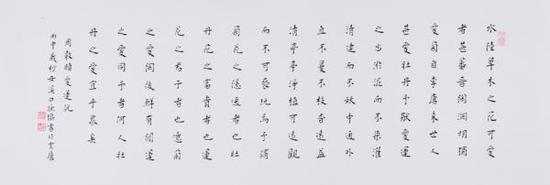 水陸草木之花可愛
者甚蕃晉陶淵明獨
愛菊自李唐來世人
甚愛牡丹予獨愛蓮
之出淤泥而不染濯
清漣而不妖中通外
直不蔓不枝香遠益
清亭亭淨植可遠觀
而不可褻玩焉予謂
菊花之隱逸者也牡
丹花之富貴者也蓮
花之君子者也噫菊
之愛陶後鮮有聞蓮
之愛同予者何人牡
丹之愛宜乎眾矣
周敦頤愛蓮說
丙申歲杪書於